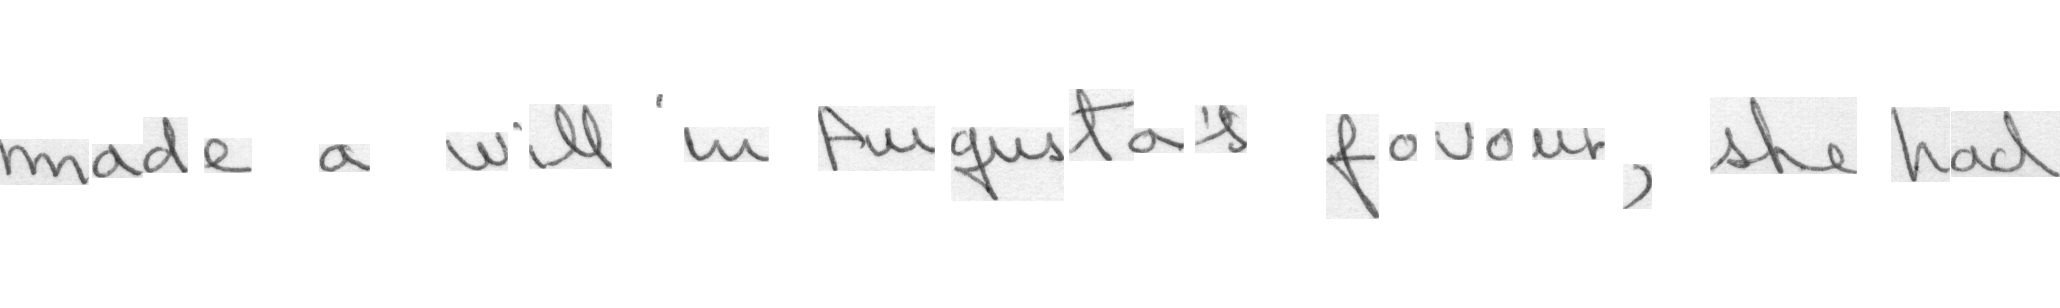 made a will in Augusta's favour, she had